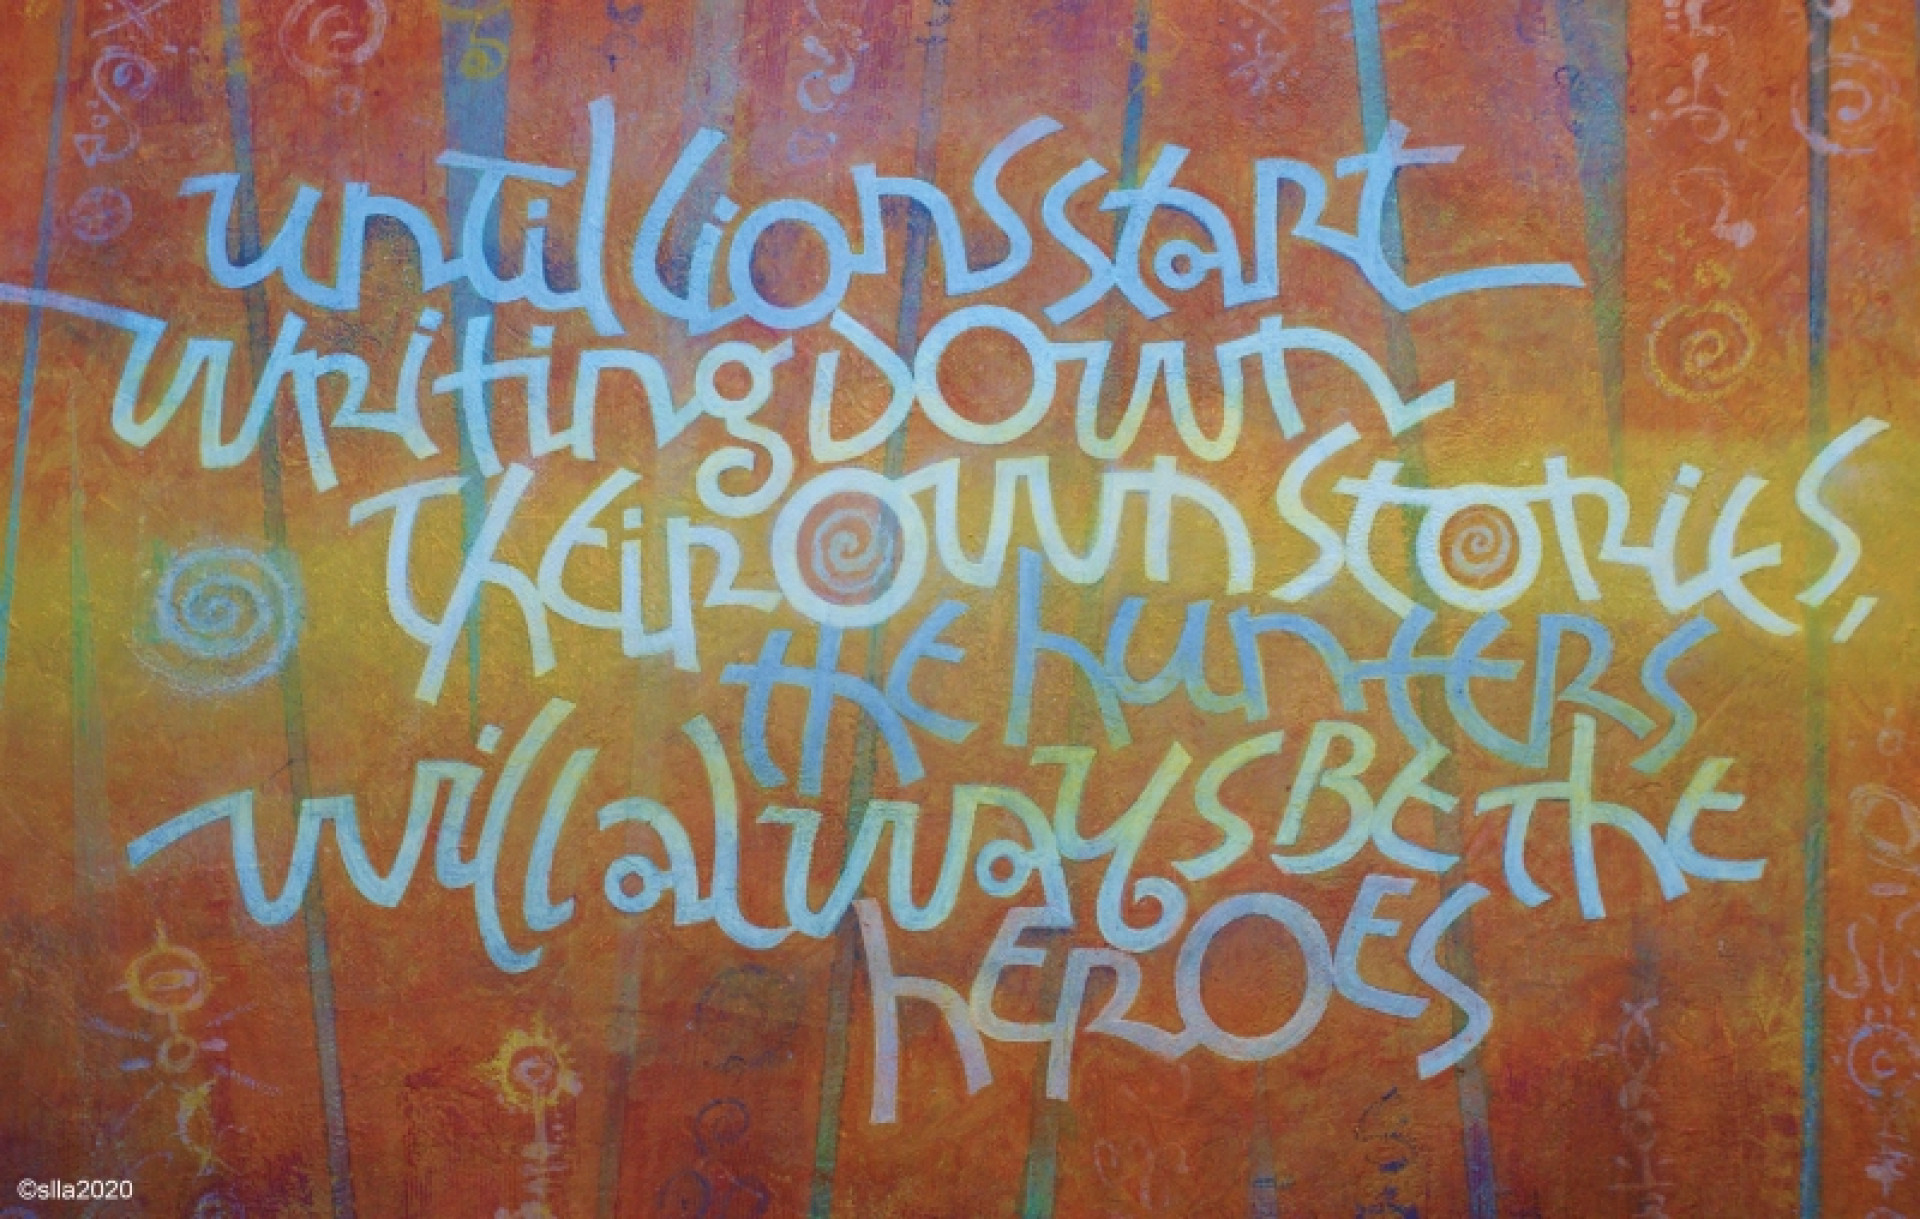 until lions start
writing down
their own stories,
the hunters
will always be the
heroes
©slla2020